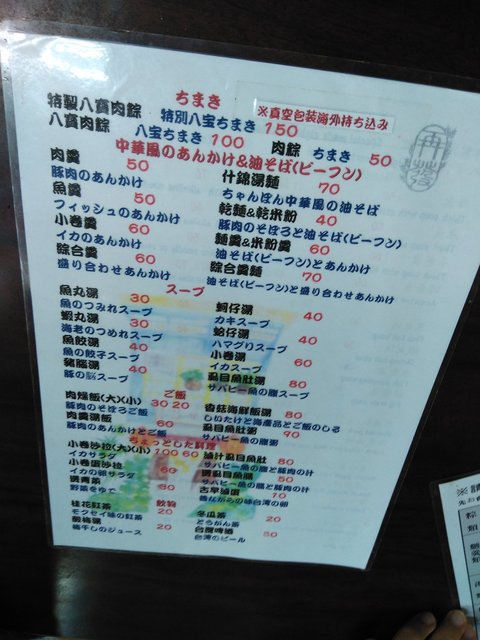 ちまき
※真空包装海外持ち込み
特製八寶肉粽 特別八宝ちまき 150
八寶肉粽 八宝ちまき 100 肉粽 ちまき 50
中華風のあんかけ&油そば(ビーフン)
肉羹 50
豚肉のあんかけ
魚羹 50
フィッシュのあんかけ
小卷羹 60
イカのあんかけ
綜合羹 60
盛り合わせあんかけ
什錦湯麵 70
ちゃんぽん中華風の油そば
乾麵&乾米粉 40
豚肉のそぼろと油そば(ビーフン)
麵羹&米粉羹 60
油そば(ビーフン)とあんかけ
綜合羹麵 70
油そば(ビーフン)と盛り合わせあんかけ
スープ
魚丸湯 30
魚のつみれスープ
蝦丸湯 30
海老のつめれスープ
魚餃湯 40
魚の餃子スープ
豬腦湯 40
豚の脳スープ
蚵仔湯 40
カキスープ
蛤仔湯 40
ハマグリスープ
小卷湯 60
イカスープ
虱目魚肚湯 80
サバヒー魚の腹スープ
ご飯
肉燥飯(大)(小) 30 20
豚肉のそぼろご飯
肉羹湯飯 60
豚肉のあんかけとご飯
香菇海鮮飯湯 80
しいたけと海産品とご飯のしる
虱目魚肚粥 90
サバヒー魚の腹粥
ちょっとした料理
小卷沙拉(大)(小) 100 60
イカサラダ
小卷蛋沙拉 60
イカの卵サラダ
燙青菜 30
野菜をゆで
滷汁虱目魚肚 80
サバヒー魚の腹と豚肉の汁
滷虱目魚頭 50
サバヒー魚の頭と豚肉の汁
古早滷蛋 10
昔ながらの味台湾の卵
飲物
桂花紅茶 20
モクセイ味の紅茶
酸梅湯 20
梅干しのジュース
冬瓜茶 20
とうがん茶
台灣啤酒 50
台湾のビール